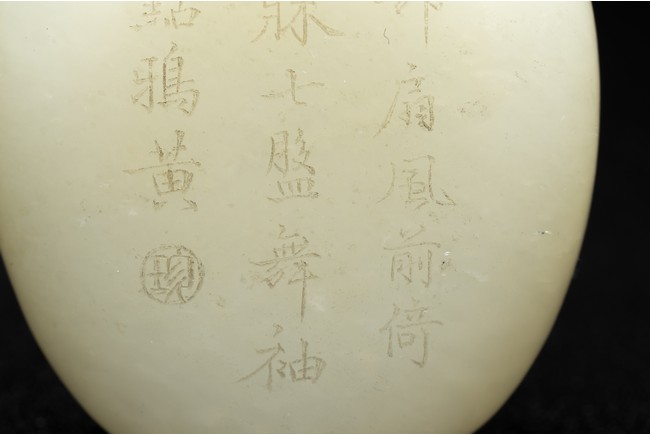 扇風前倚
七盤舞袖
鴉黃